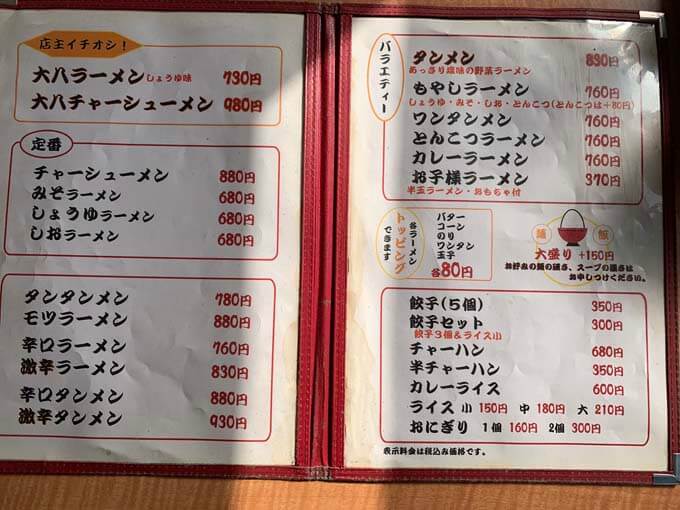 店主イチオシ！
大八ラーメン しょうゆ味 730円
大八チャーシューメン 980円
定番
チャーシューメン 880円
みそラーメン 680円
しょうゆラーメン 680円
しおラーメン 680円
タンタンメン 780円
モツラーメン 880円
辛口ラーメン 760円
激辛ラーメン 830円
辛口タンメン 880円
激辛タンメン 930円
バラエティー
タンメン 830円
あっさり塩味の野菜ラーメン
もやしラーメン 760円
しょうゆ・みそ・しお・とんこつ(とんこつは+80円)
ワンタンメン 760円
とんこつラーメン 760円
カレーラーメン 760円
お子様ラーメン 370円
半玉ラーメン・おもちゃ付
各ラーメン
トッピング
できます
バター
コーン
のり
ワンタン
玉子
各80円
麺 飯
大盛り +150円
お好みの麺の硬さ、スープの濃さは
お申しつけください。
餃子(5個) 350円
餃子セット 300円
餃子3個&ライス小
チャーハン 680円
半チャーハン 350円
カレーライス 600円
ライス 小 150円 中 180円 大 210円
おにぎり 1個 160円 2個 300円
表示料金は税込み価格です。